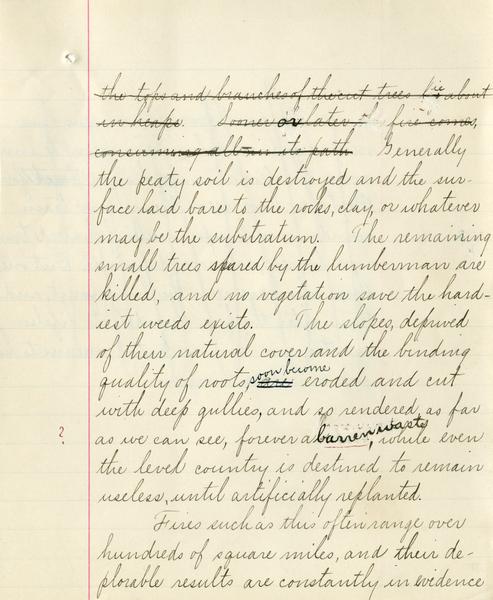 the tops and branches of the cut trees lie about
in heaps. Sooner or later fire comes,
consuming all in its path. Generally
the peaty soil is destroyed and the sur-
face laid bare to the rocks, clay, or whatever
may be the substratum. The remaining
small trees spared by the lumberman are
killed, and no vegetation save the hard-
iest weeds exists. The slopes, deprived
of their natural cover and the binding
quality of roots, soon become are eroded and cut
with deep gullies, and so rendered, as far
? as we can see, forever a barren waste, while even
the level country is destined to remain
useless, until artificially replanted.
Fires such as this often range over
hundreds of square miles, and their de-
plorable results are constantly in evidence